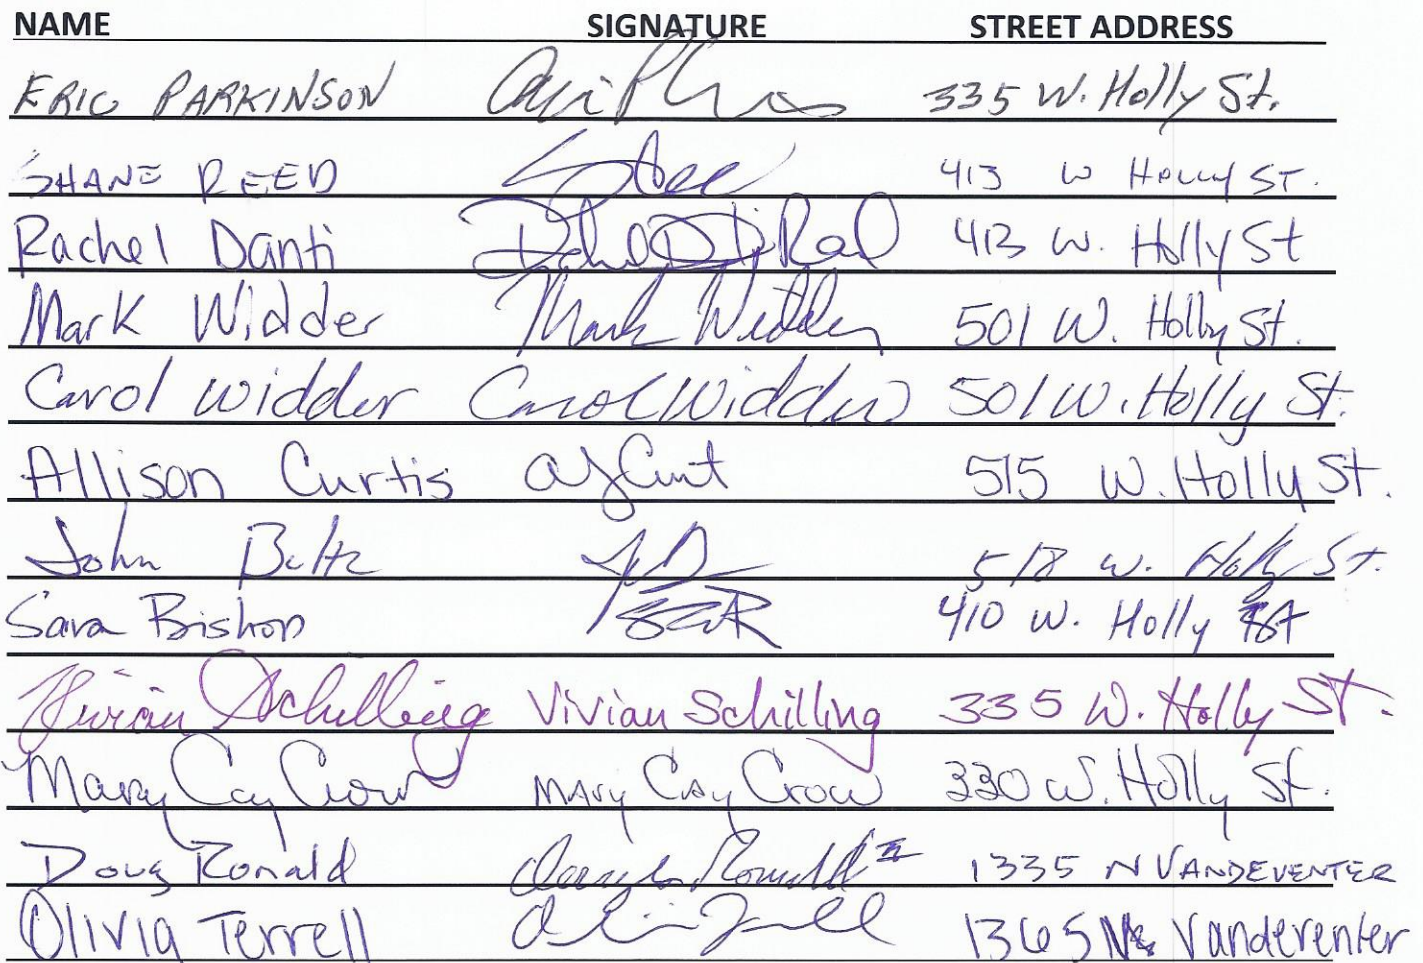 NAME SIGNATURE STREET ADDRESS
ERIC PARKINSON 335 W. Holly St.
SHANE REED 413 W HOLLY ST.
Rachel Danti 413 W. Holly St
Mark Widder Mark Widder 501 W. Holly St.
Carol Widder Carol Widder 501 W. Holly St.
Allison Curtis 515 W. Holly St.
John 518 W. Holly St.
Sara Bishop 410 W. Holly St
Vivian Schilling Vivian Schilling 335 W. Holly St.
Mary Cay Crow Mary Cay Crow 330 W. Holly St.
Doug Ronald 1335 N VANDEVENTER
Olivia Terrell 1365 N Vandeventer